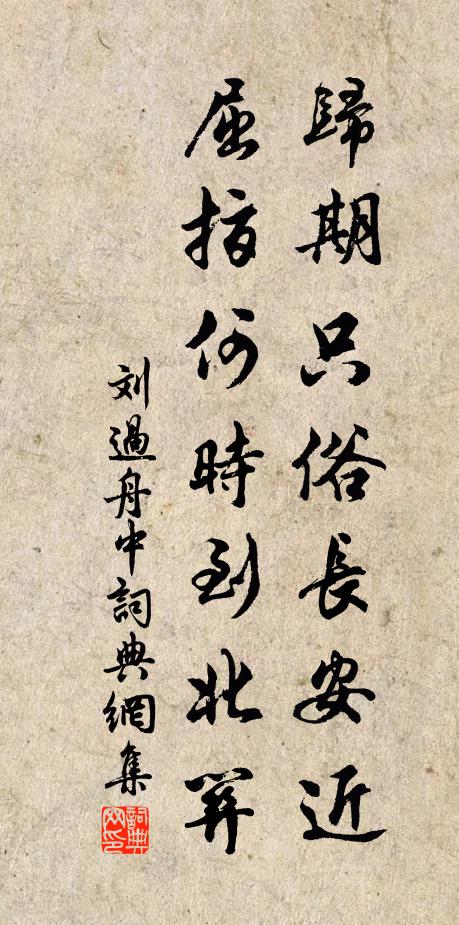 歸期只俗長安近
屈指何時到北關
刘過舟中詞典網集
詞典
网印